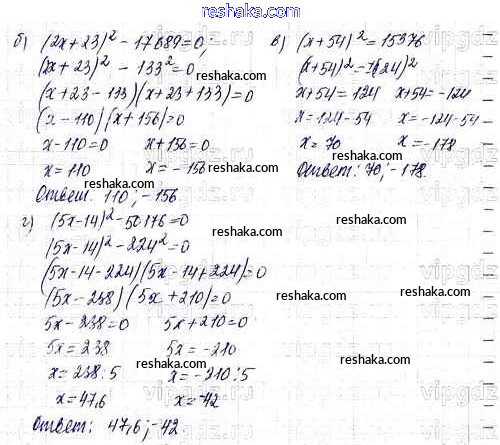 reshaka.com
б) (2x+23)² - 17689=0,
(2x+23)² - 133²=0
(x+23-133)(x+23+133)=0
(x-110)(x+156)=0
x-110=0 x+156=0
x=110 x=-156
Ответ: 110; -156.
г) (5x-14)²-50176=0
(5x-14)²-224²=0
(5x-14-224)(5x-14+224)=0
(5x-238)(5x+210)=0
5x-238=0 5x+210=0
5x=238 5x=-210
x=238:5 x=-210:5
x=47,6 x=-42
Ответ: 47,6; -42.
в) (x+54)²=15376
(x+54)²=124²
x+54=124 x+54=-124
x=124-54 x=-124-54
x=70 x=-178
Ответ: 70; -178.
reshaka.com
reshaka.com
reshaka.com
reshaka.com
reshaka.com
reshaka.com
reshaka.com
reshaka.com
vipgdz